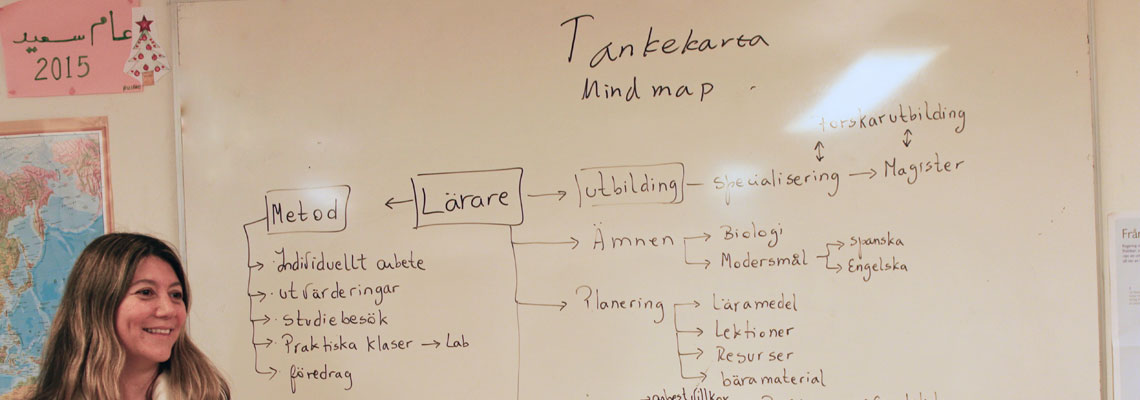 عام سعيد
2015
Tankekarta
Mind map
forskarutbilding
Metod ← Lärare → utbilding – specialisering → Magister
Individuellt arbete
utvärderingar
studiebesök
Praktiska klaser → Lab
föredrag
Ämnen
Biologi
Modersmål
spanska
Engelska
Planering
Läramedel
Lektioner
Resurser
bäramaterial
Från